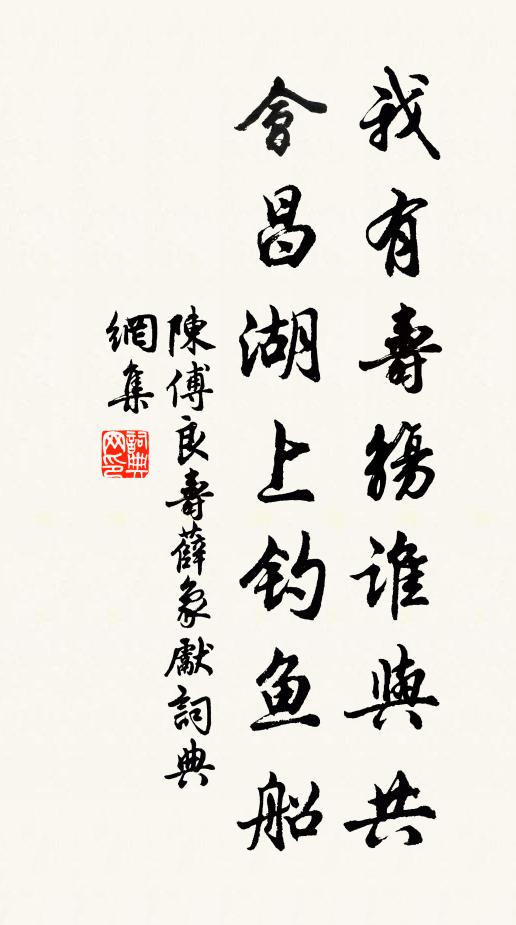 我有壽觴誰與共
會昌湖上钓鱼船
陳傅良壽薛象獻詞典
網集
詞典
网印